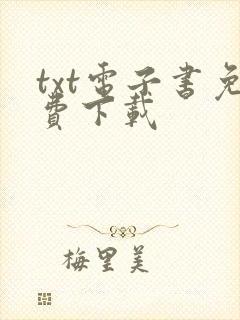 txt電子書免
費下載
梅里美